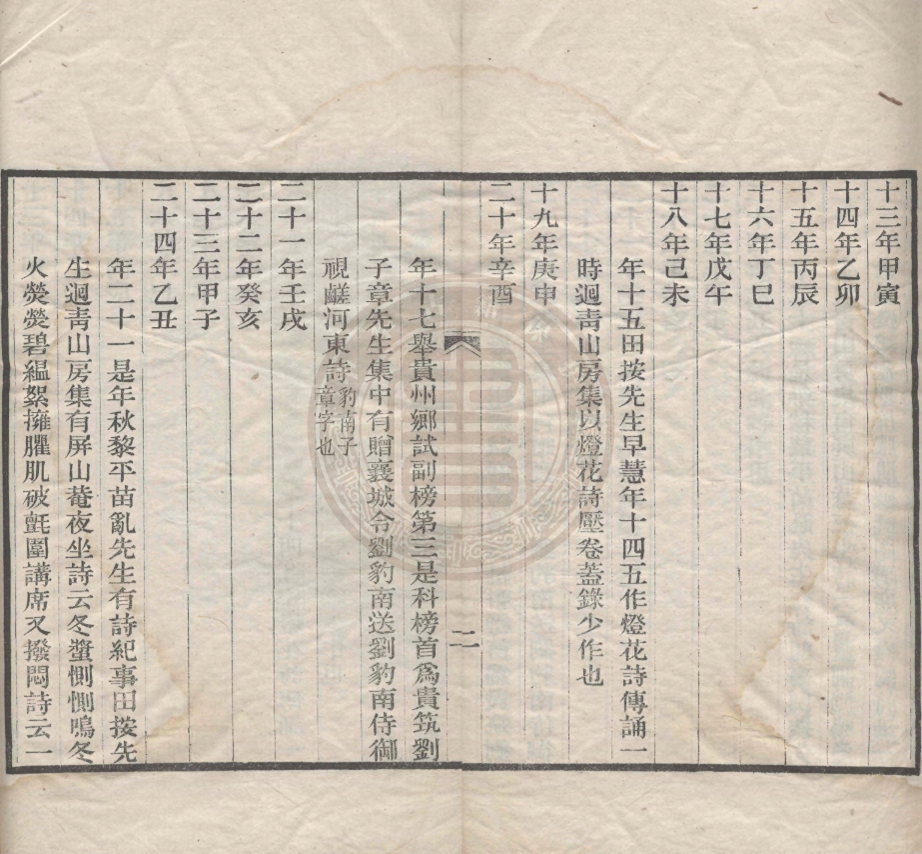 十三年甲寅
十四年乙卯
十五年丙辰
十六年丁巳
十七年戊午
十八年己未
年十五田按先生早慧年十四五作燈花詩傳誦一
時迴青山房集以燈花詩壓卷蓋錄少作也
十九年庚申
二十年辛酉
二
年十七舉貴州鄉試副榜第三是科榜首爲貴筑劉
子章先生集中有贈襄城令劉豹南送劉豹南侍御
視鹺河東詩豹南子
章字也
二十一年壬戌
二十二年癸亥
二十三年甲子
二十四年乙丑
年二十一是年秋黎平苗亂先生有詩紀事田按先
生迴青山房集有屏山菴夜坐詩云冬螿惻惻鳴冬
火熒熒碧縕絮擁臞肌破氈圍講席又撥悶詩云一